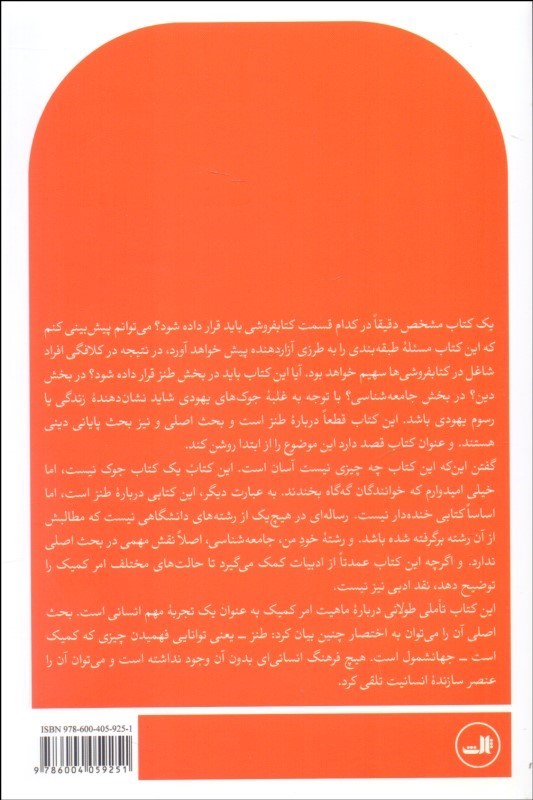 یک کتاب مشخص دقیقاً در کدام قسمت کتابفروشی باید قرار داده شود؟ می‌توانم پیش‌بینی کنم
که این کتاب مسئلهٔ طبقه‌بندی را به طرزی آزاردهنده پیش خواهد آورد، در نتیجه در کلافگی افراد
شاغل در کتابفروشی‌ها سهیم خواهد بود. آیا این کتاب باید در بخش طنز قرار داده شود؟ در بخش
دین؟ در بخش جامعه‌شناسی؟ با توجه به غلبهٔ جوک‌های یهودی شاید نشان‌دهندهٔ زندگی یا
رسوم یهودی باشد. این کتاب قطعاً دربارهٔ طنز است و بحث اصلی و نیز بحث پایانی دینی
هستند. و عنوان کتاب قصد دارد این موضوع را از ابتدا روشن کند.
گفتن این‌که این کتاب چه چیزی نیست آسان است. این کتاب یک کتاب جوک نیست، اما
خیلی امیدوارم که خوانندگان گه‌گاه بخندند. به عبارت دیگر، این کتابی دربارهٔ طنز است، اما
اساساً کتابی خنده‌دار نیست. رساله‌ای در هیچ‌یک از رشته‌های دانشگاهی نیست که مطالبش
از آن رشته برگرفته شده باشد. و رشتهٔ خودِ من، جامعه‌شناسی، اصلاً نقش مهمی در بحث اصلی
ندارد. و اگرچه این کتاب عمدتاً از ادبیات کمک می‌گیرد تا حالت‌های مختلف امر کمیک را
توضیح دهد، نقد ادبی نیز نیست.
این کتاب تأملی طولانی دربارهٔ ماهیت امر کمیک به عنوان یک تجربهٔ مهم انسانی است. بحث
اصلی آن را می‌توان به اختصار چنین بیان کرد: طنز ــ یعنی توانایی فهمیدن چیزی که کمیک
است ــ جهانشمول است. هیچ فرهنگ انسانی‌ای بدون آن وجود نداشته است و می‌توان آن را
عنصر سازندهٔ انسانیت تلقی کرد.
ISBN 978-600-405-925-1
9 786004 059251
ثالث